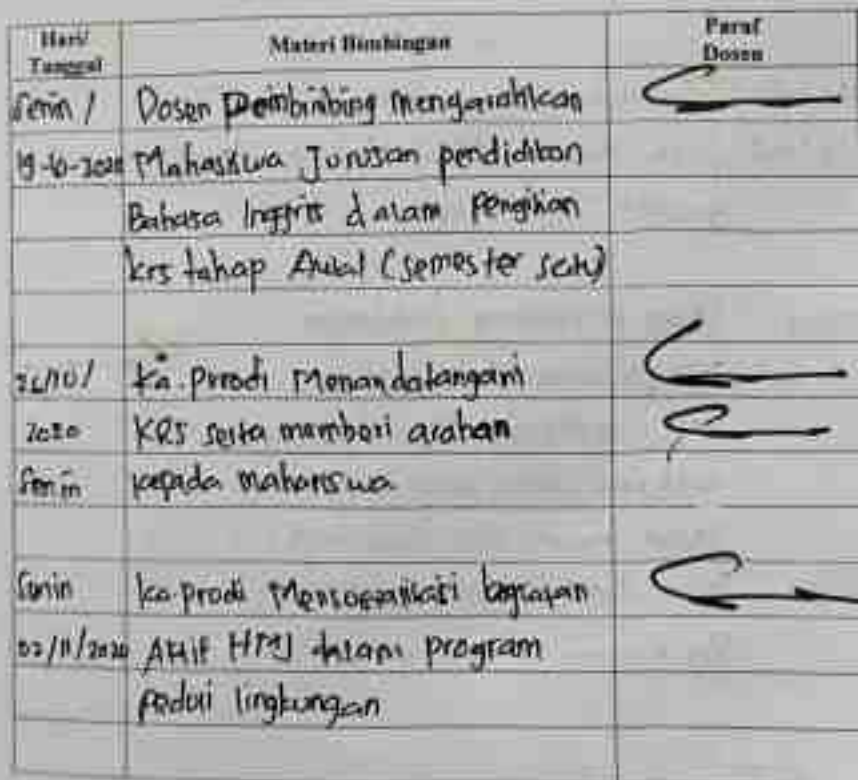 Hari/ Materi Bimbingan Paraf
Tanggal Dosen
Senin / Dosen Pembimbing mengarahkan
19-10-2020 Mahasiswa Jurusan pendidikan
Bahasa Inggris dalam Pengisian
krs tahap Awal (semester satu)
26/10/ Ka.prodi Menandatangani
2020 KRS serta memberi arahan
Senin kepada mahasiswa
Senin ka.prodi Mensosialisasi kegiatan
02/11/2020 Aktif HMJ dalam program
Peduli lingkungan